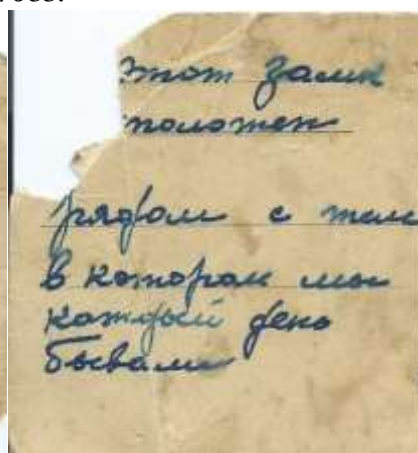 этот замк
положен
рядом с тем
в котором мы
каждый день
бывали